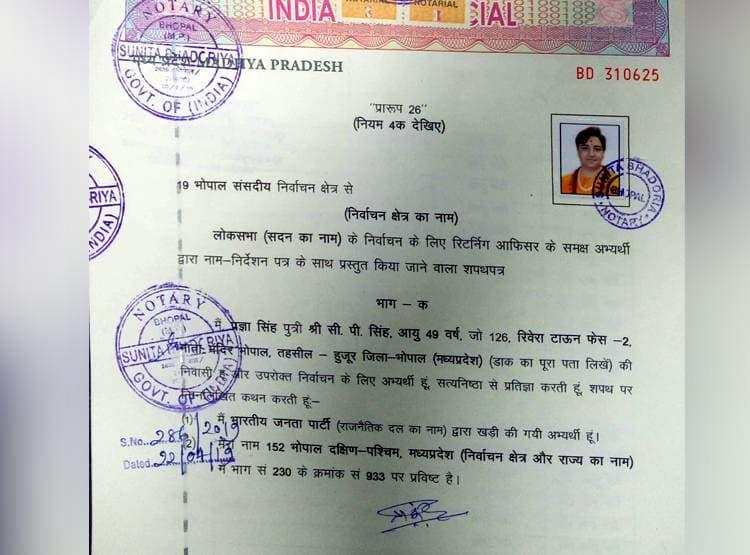 NOTARIAL NOTARIAL
INDIA CIAL
मध्य प्रदेश MADHYA PRADESH
BD 310625
NOTARY
BHOPAL
(M.P.)
SUNITA BHADORIYA
GOVT. OF (INDIA)
"प्रारूप 26"
(नियम 4क देखिए)
SUNITA BHADORIA
BHOPAL
NOTARY
RIYA
INDIA)
19 भोपाल संसदीय निर्वाचन क्षेत्र से
(निर्वाचन क्षेत्र का नाम)
लोकसभा (सदन का नाम) के निर्वाचन के लिए रिटर्निंग आफिसर के समक्ष अभ्यर्थी
द्वारा नाम–निर्देशन पत्र के साथ प्रस्तुत किया जाने वाला शपथपत्र
भाग – क
NOTARY
BHOPAL
SUNITA BHADORIYA
GOVT. OF (INDIA)
मैं प्रज्ञा सिंह पुत्री श्री सी. पी. सिंह, आयु 49 वर्ष, जो 126, रिवेरा टाऊन फेस –2,
माता मंदिर भोपाल, तहसील – हुजूर जिला–भोपाल (मध्यप्रदेश) (डाक का पूरा पता लिखें) की
निवासी हूं और उपरोक्त निर्वाचन के लिए अभ्यर्थी हूं, सत्यनिष्ठा से प्रतिज्ञा करती हूं, शपथ पर
निम्नलिखित कथन करती हूं:–
(1) मैं भारतीय जनता पार्टी (राजनैतिक दल का नाम) द्वारा खड़ी की गयी अभ्यर्थी हूं।
S.No. 286/2019
(2) मेरा नाम 152 भोपाल दक्षिण–पश्चिम, मध्यप्रदेश (निर्वाचन क्षेत्र और राज्य का नाम)
Dated 22/04/19
में भाग सं 230 के क्रमांक सं 933 पर प्रविष्ट है।